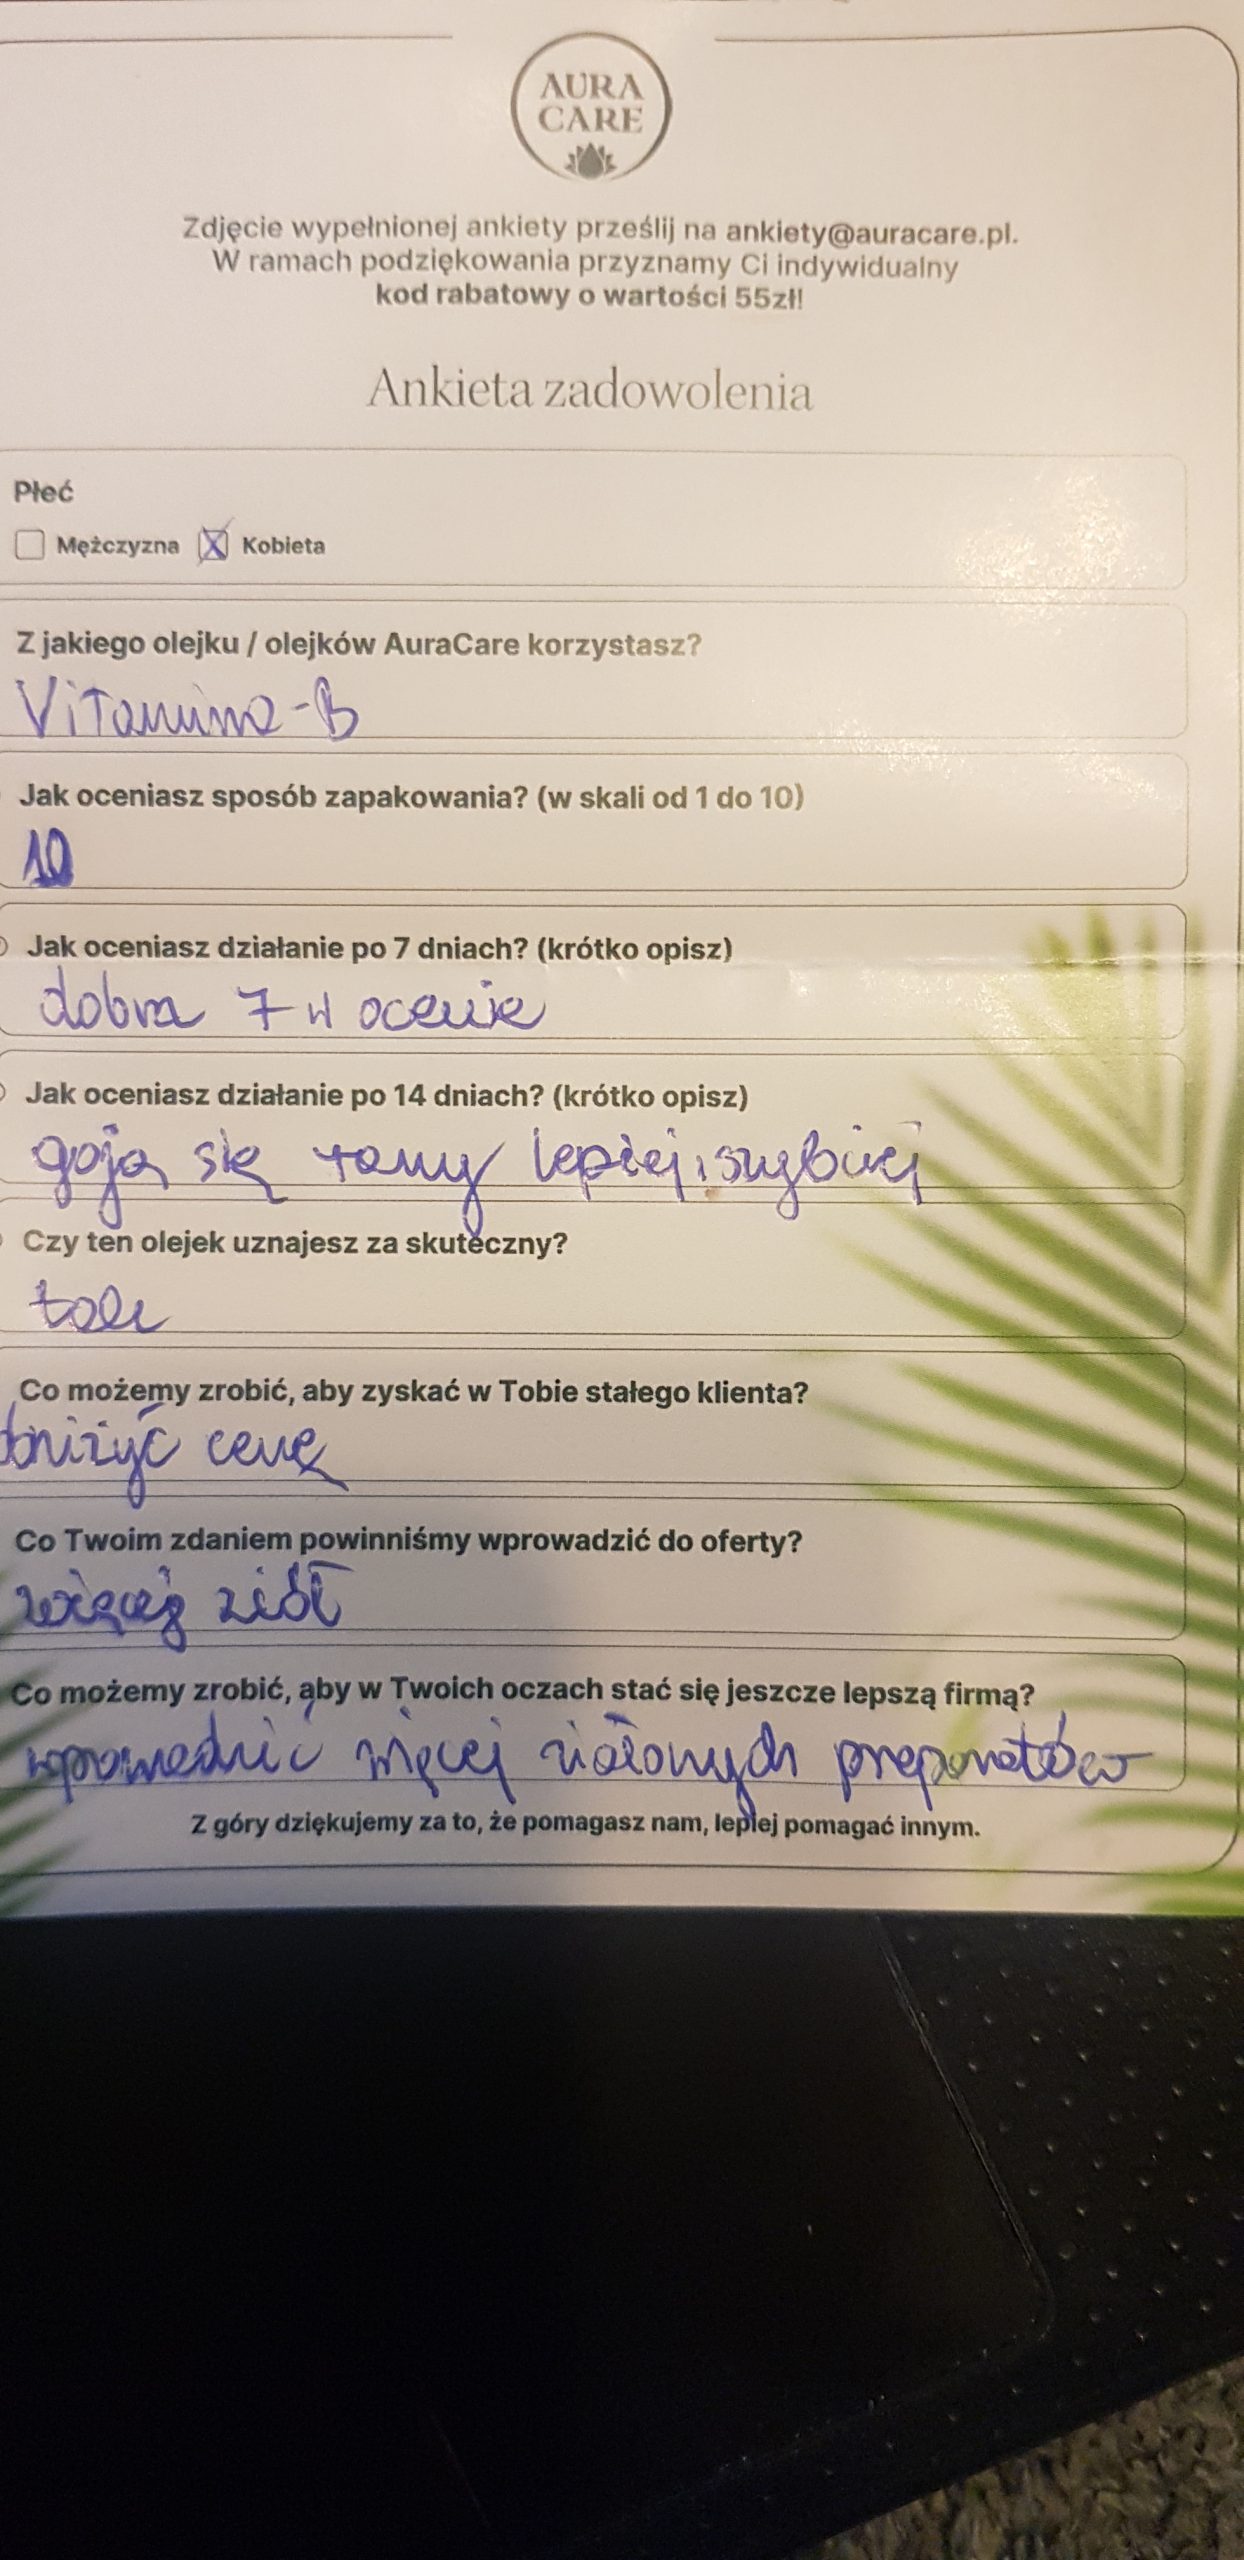 AURA
CARE
Zdjęcie wypełnionej ankiety prześlij na ankiety@auracare.pl.
W ramach podziękowania przyznamy Ci indywidualny
kod rabatowy o wartości 55zł!
Ankieta zadowolenia
Płeć
Mężczyzna Kobieta
Z jakiego olejku / olejków AuraCare korzystasz?
Vitamina-B
Jak oceniasz sposób zapakowania? (w skali od 1 do 10)
10
Jak oceniasz działanie po 7 dniach? (krótko opisz)
dobra 7 w ocenie
Jak oceniasz działanie po 14 dniach? (krótko opisz)
goją się rany lepiej, szybciej
Czy ten olejek uznajesz za skuteczny?
tak
Co możemy zrobić, aby zyskać w Tobie stałego klienta?
obniżyć cenę
Co Twoim zdaniem powinniśmy wprowadzić do oferty?
więcej ziół
Co możemy zrobić, aby w Twoich oczach stać się jeszcze lepszą firmą?
wprowadzić więcej ziołowych preparatów
Z góry dziękujemy za to, że pomagasz nam, lepiej pomagać innym.